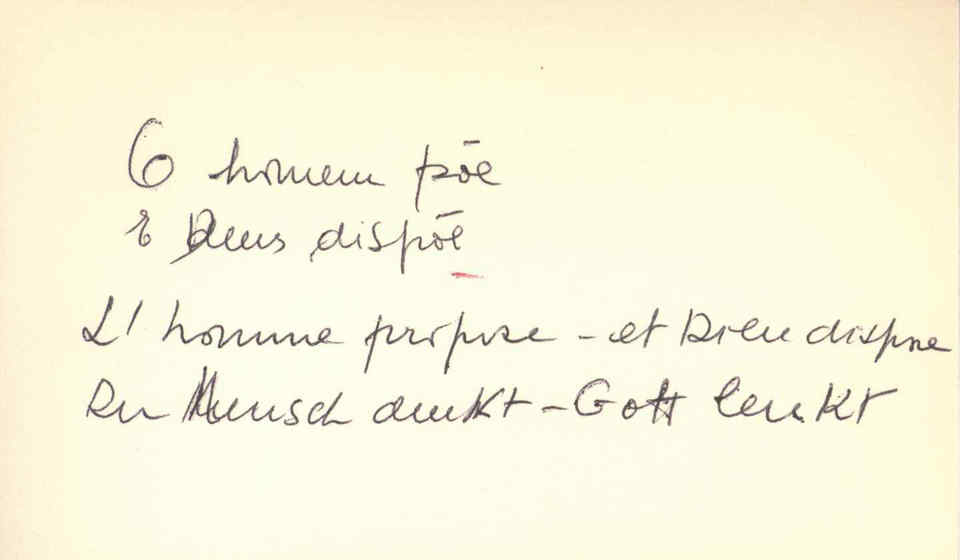 O homem põe
e Deus dispõe
L'homme propose - et Dieu dispose
Der Mensch denkt - Gott lenkt